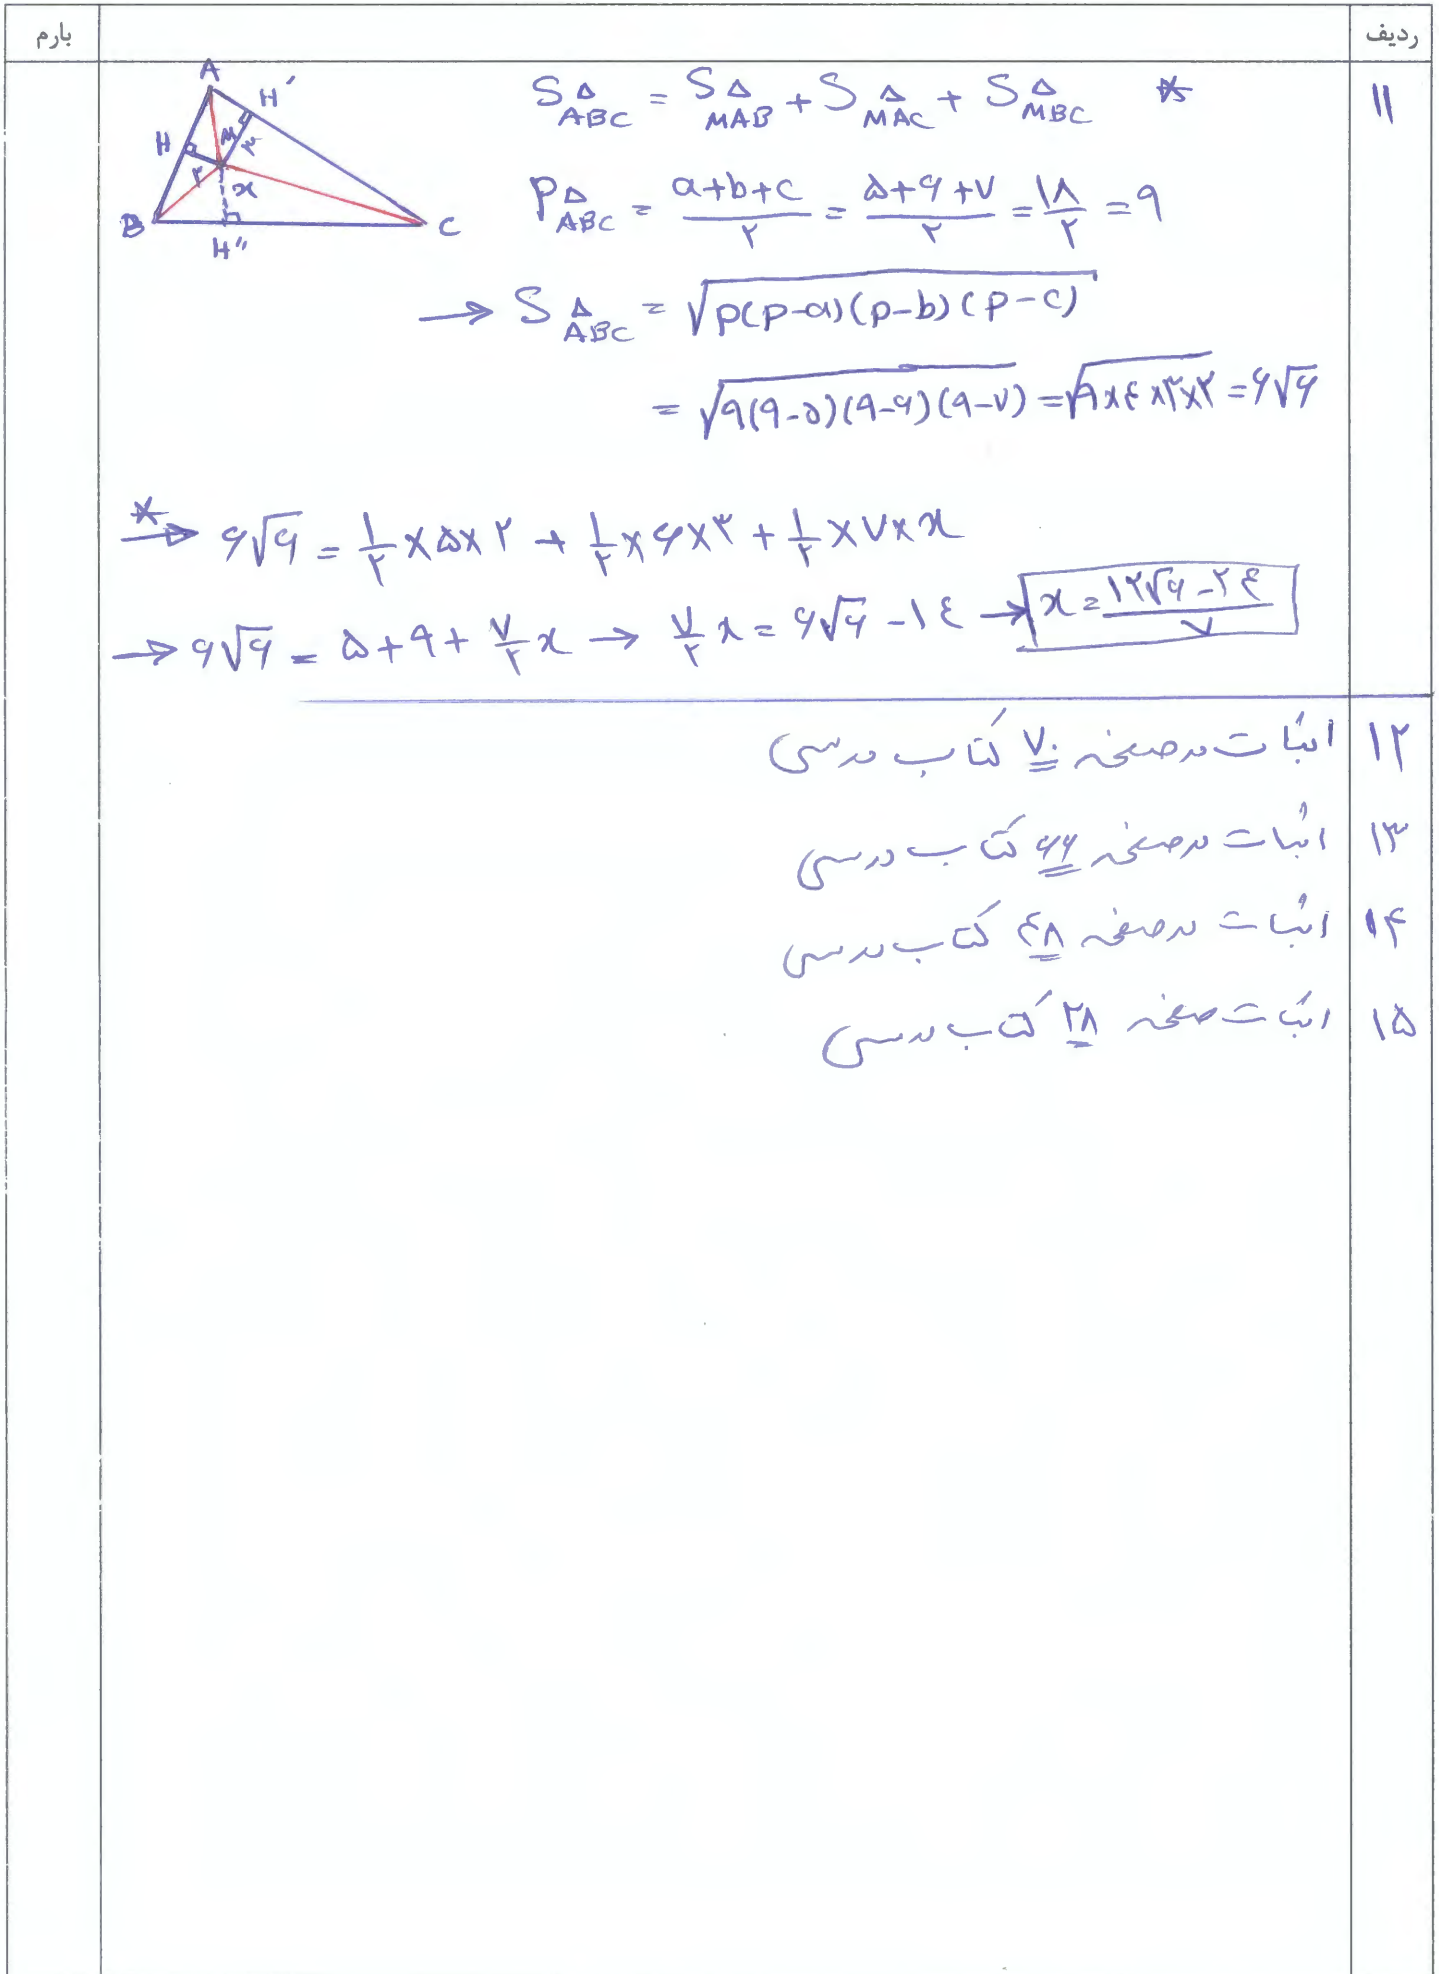 ردیف
بارم
۱۱
S△ABC = S△MAB + S△MAC + S△MBC *
A H′ H M ۲ ۳ x B H″ C
P△ABC = (a+b+c)/۲ = (۵+۶+۷)/۲ = ۱۸/۲ = ۹
→ S△ABC = √(p(p-a)(p-b)(p-c))
= √(۹(۹-۵)(۹-۶)(۹-۷)) = √(۹×۴×۳×۲) = ۶√۶
*→ ۶√۶ = ۱/۲ ×۵×۲ + ۱/۲ ×۶×۳ + ۱/۲ ×۷×x
→ ۶√۶ = ۵+۹+ ۷/۲ x → ۷/۲ x = ۶√۶ - ۱۴ → x = (۱۲√۶ - ۲۴)/۷
۱۲ اثبات در صفحه ۷۰ کتاب درسی
۱۳ اثبات در صفحه ۶۶ کتاب درسی
۱۴ اثبات در صفحه ۴۸ کتاب درسی
۱۵ اثبات صفحه ۲۸ کتاب درسی